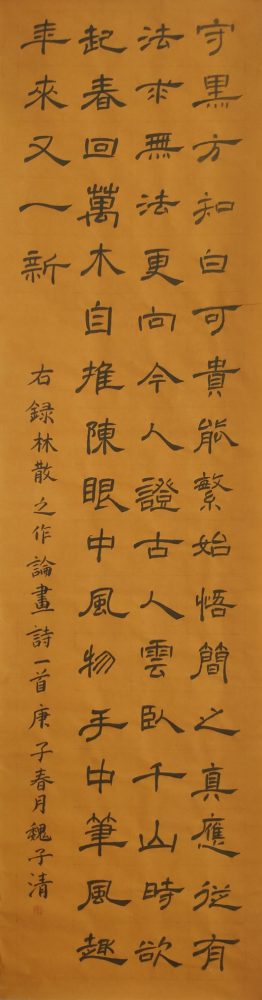 守黑方知白可貴能繁始悟簡之真應從有
法求無法更向今人證古人雲臥千山時欲
起春回萬木自推陳眼中風物手中筆風趣
年來又一新
右録林散之作論畫詩一首庚子春月魏子清